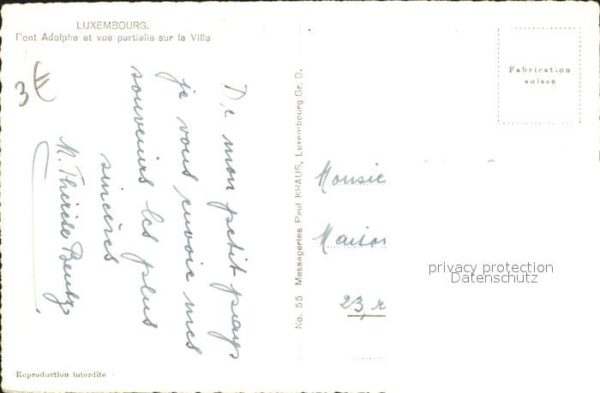 LUXEMBOURG.
Pont Adolphe et vue partielle sur la Ville
3€
De mon petit pays
je vous envoie mes
souvenirs les plus
sincères
M. Thérèse Bentz
No. 55 Messageries Paul KRAUS, Luxembourg Gr. D.
Fabrication
suisse
Monsie
Maison
23, r
privacy protection
Datenschutz
Reproduction interdite